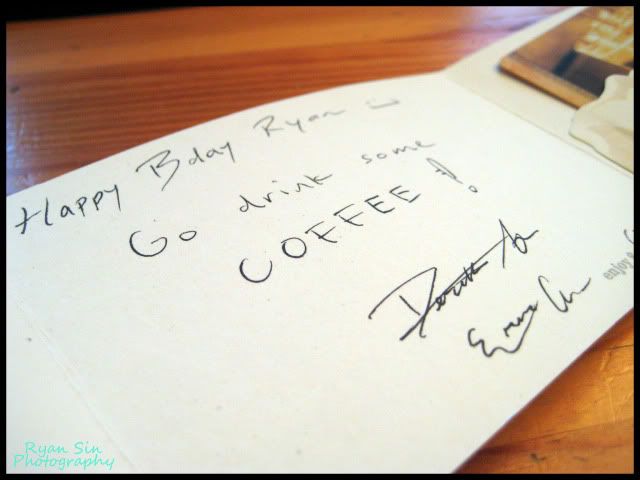 Happy Bday Ryan :)
Go drink some
COFFEE!
enjoy a
Ryan Sin
Photography